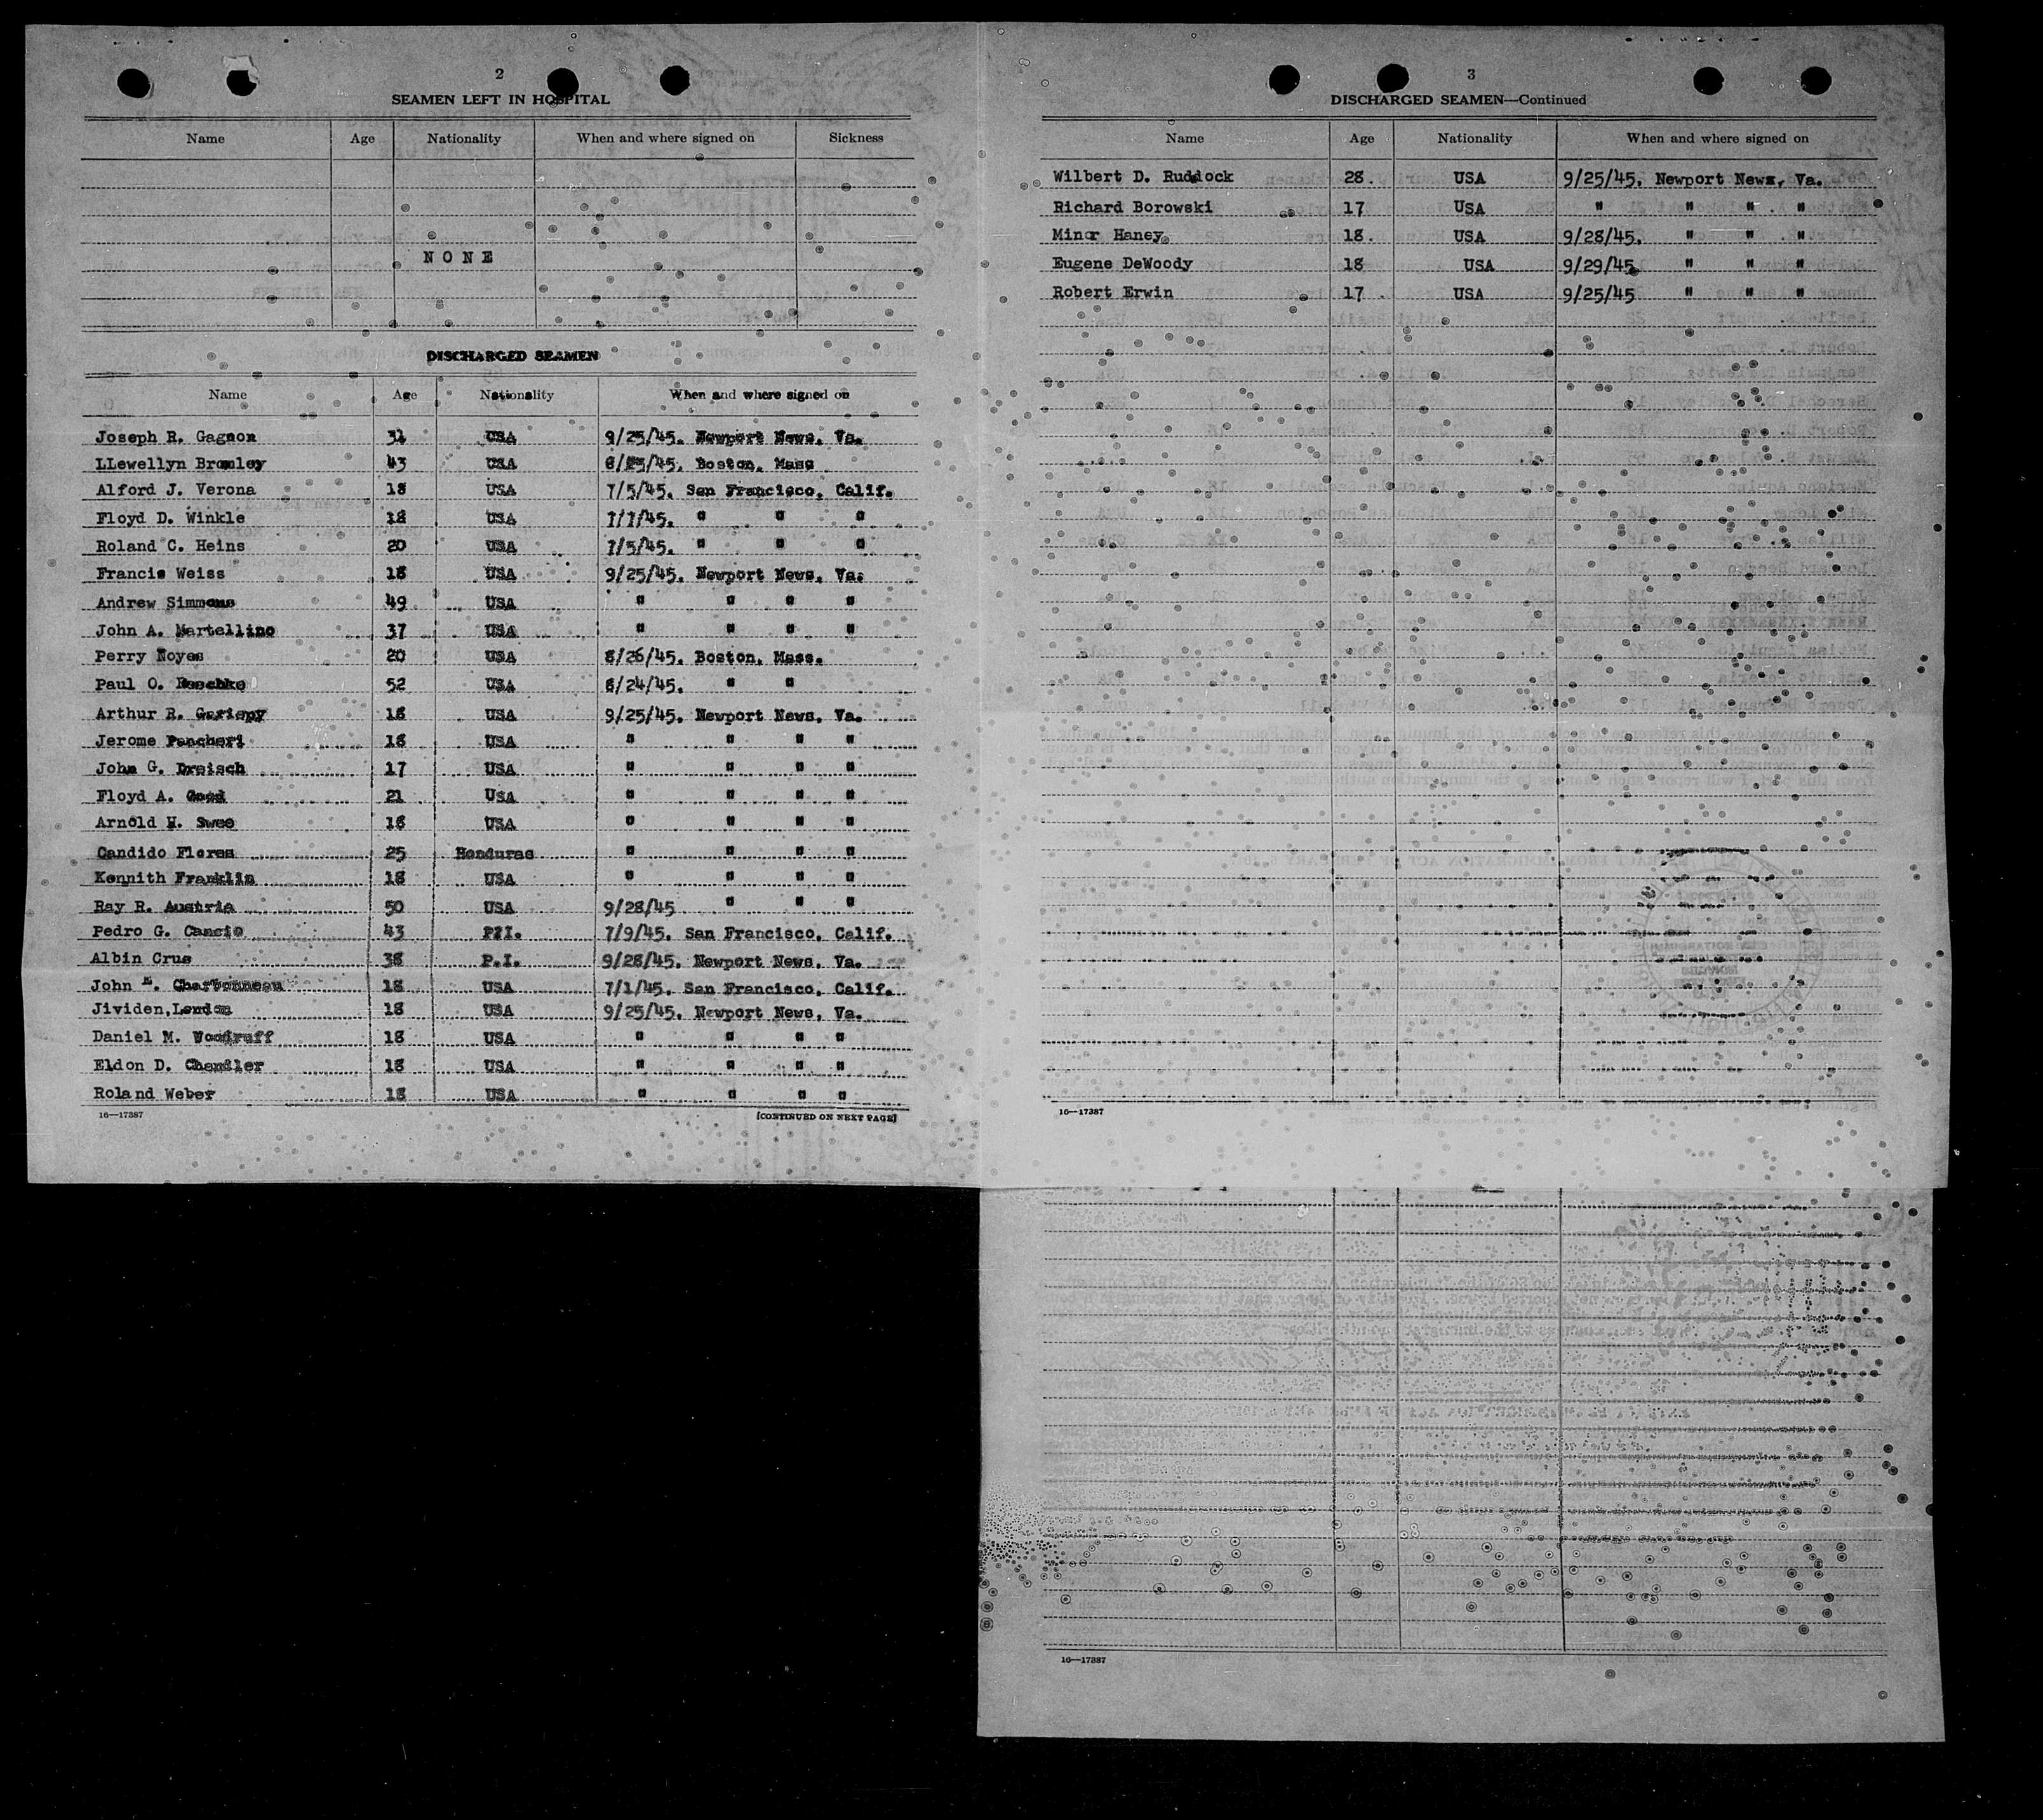 2
SEAMEN LEFT IN HOSPITAL
Name Age Nationality When and where signed on Sickness
NONE
DISCHARGED SEAMEN
Name Age Nationality When and where signed on
Joseph R. Gagnon 31 USA 9/25/45. Newport News, Va.
LLewellyn Bromley 43 USA Boston, Mass
Alford J. Verona 18 USA 7/5/45. San Francisco, Calif.
Floyd D. Winkle 18 USA 7/7/45. " " "
Roland C. Heins 20 USA 7/5/45. " " "
Francis Weiss 18 USA 9/25/45. Newport News, Va.
Andrew Simmons 49 USA " " " "
John A. Martellino 37 USA " " " "
Perry Noyes 20 USA 8/26/45. Boston, Mass.
Paul O. Reschke 52 USA 8/24/45. " "
Arthur R. Gariepy 18 USA 9/25/45. Newport News, Va.
Jerome Pancheri 18 USA " " " "
John G. Dreisch 17 USA " " " "
Floyd A. Good 21 USA " " " "
Arnold H. Swee 18 USA " " " "
Candido Flores 25 Honduras " " " "
Kennith Franklin 18 USA " " " "
Ray R. Austria 50 USA 9/28/45 " " "
Pedro G. Cancio 43 P.I. 7/9/45. San Francisco, Calif.
Albin Crus 38 P.I. 9/28/45. Newport News, Va.
John E. Charbonneau 18 USA 7/1/45. San Francisco, Calif.
Jividen, Lendon 18 USA 9/25/45. Newport News, Va.
Daniel M. Woodruff 18 USA " " " "
Eldon D. Chandler 18 USA " " " "
Roland Weber 18 USA " " " "
16—17387 [CONTINUED ON NEXT PAGE]
3
DISCHARGED SEAMEN—Continued
Name Age Nationality When and where signed on
Wilbert D. Ruddock 28. USA 9/25/45, Newport News, Va.
Richard Borowski 17 USA " " " "
Minor Haney 18. USA 9/28/45. " " "
Eugene DeWoody 18 USA 9/29/45 " " "
Robert Erwin 17 USA 9/25/45 " " "
16—17387
16—17387